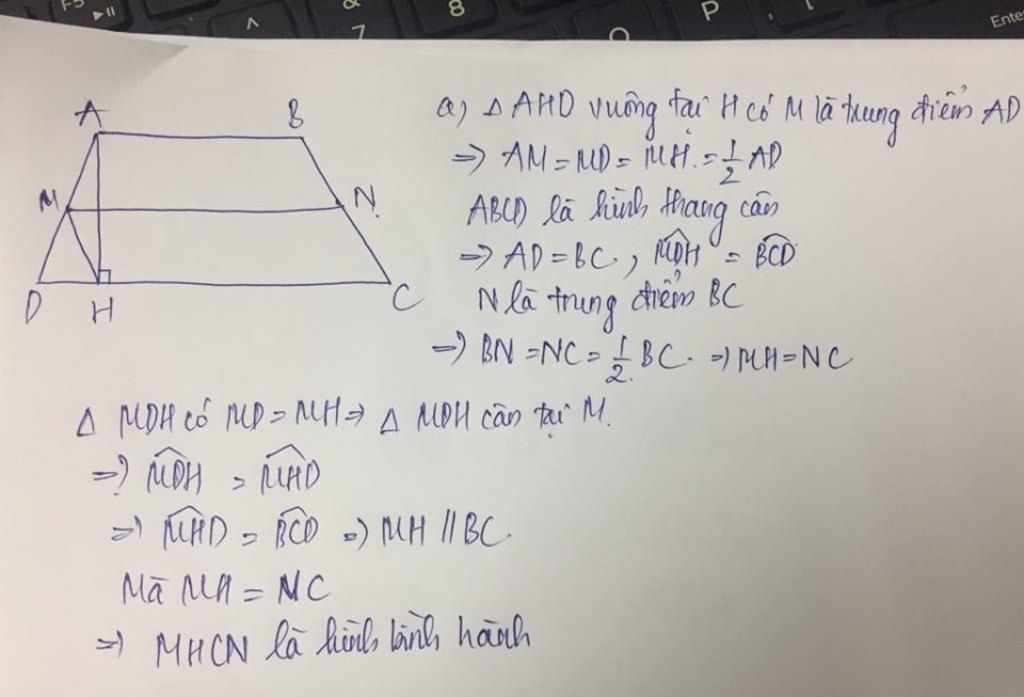 F5 ▶II
^
&
7
8
9
P
Enter
A
B
M
N
D
H
C
a) Δ AHD vuông tại H có M là trung điểm AD
=> AM = MD = MH = 1/2 AD
ABCD là hình thang cân
=> AD = BC, \widehat{MDH} = \widehat{BCD}
N là trung điểm BC
=> BN = NC = 1/2 BC. => MH = NC
Δ MDH có MD = MH => Δ MDH cân tại M.
=> \widehat{MDH} = \widehat{MHD}
=> \widehat{MHD} = \widehat{BCD} => MH // BC.
Mà MH = NC
=> MHCN là hình bình hành